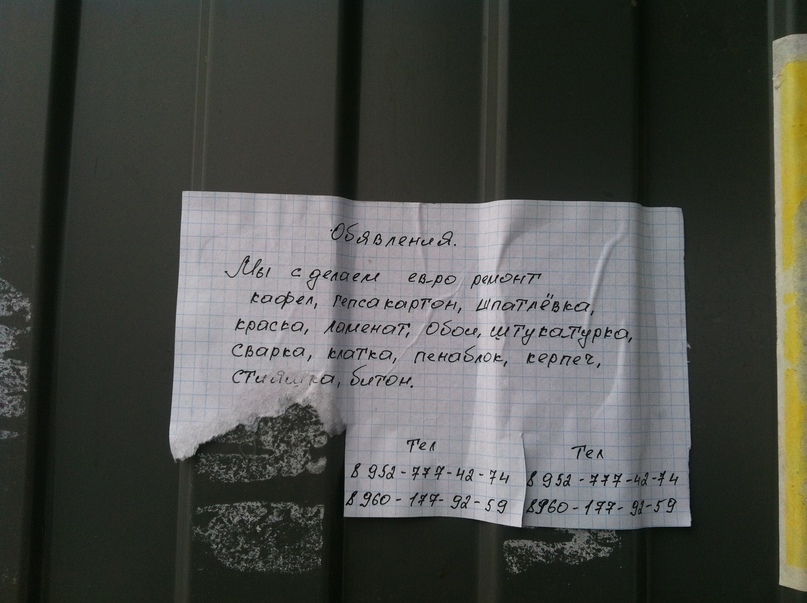 Обявления.
Мы сделаем евро ремонт
кафел, гепсакартон, шпатлёвка,
краска, ламенат, Обои, штукатурка,
сварка, клатка, пенаблок, керпеч,
битон.
Тел
8 952-777-42-74
8960-177-92-59
Тел
8 952-777-42-74
8960-177-92-59